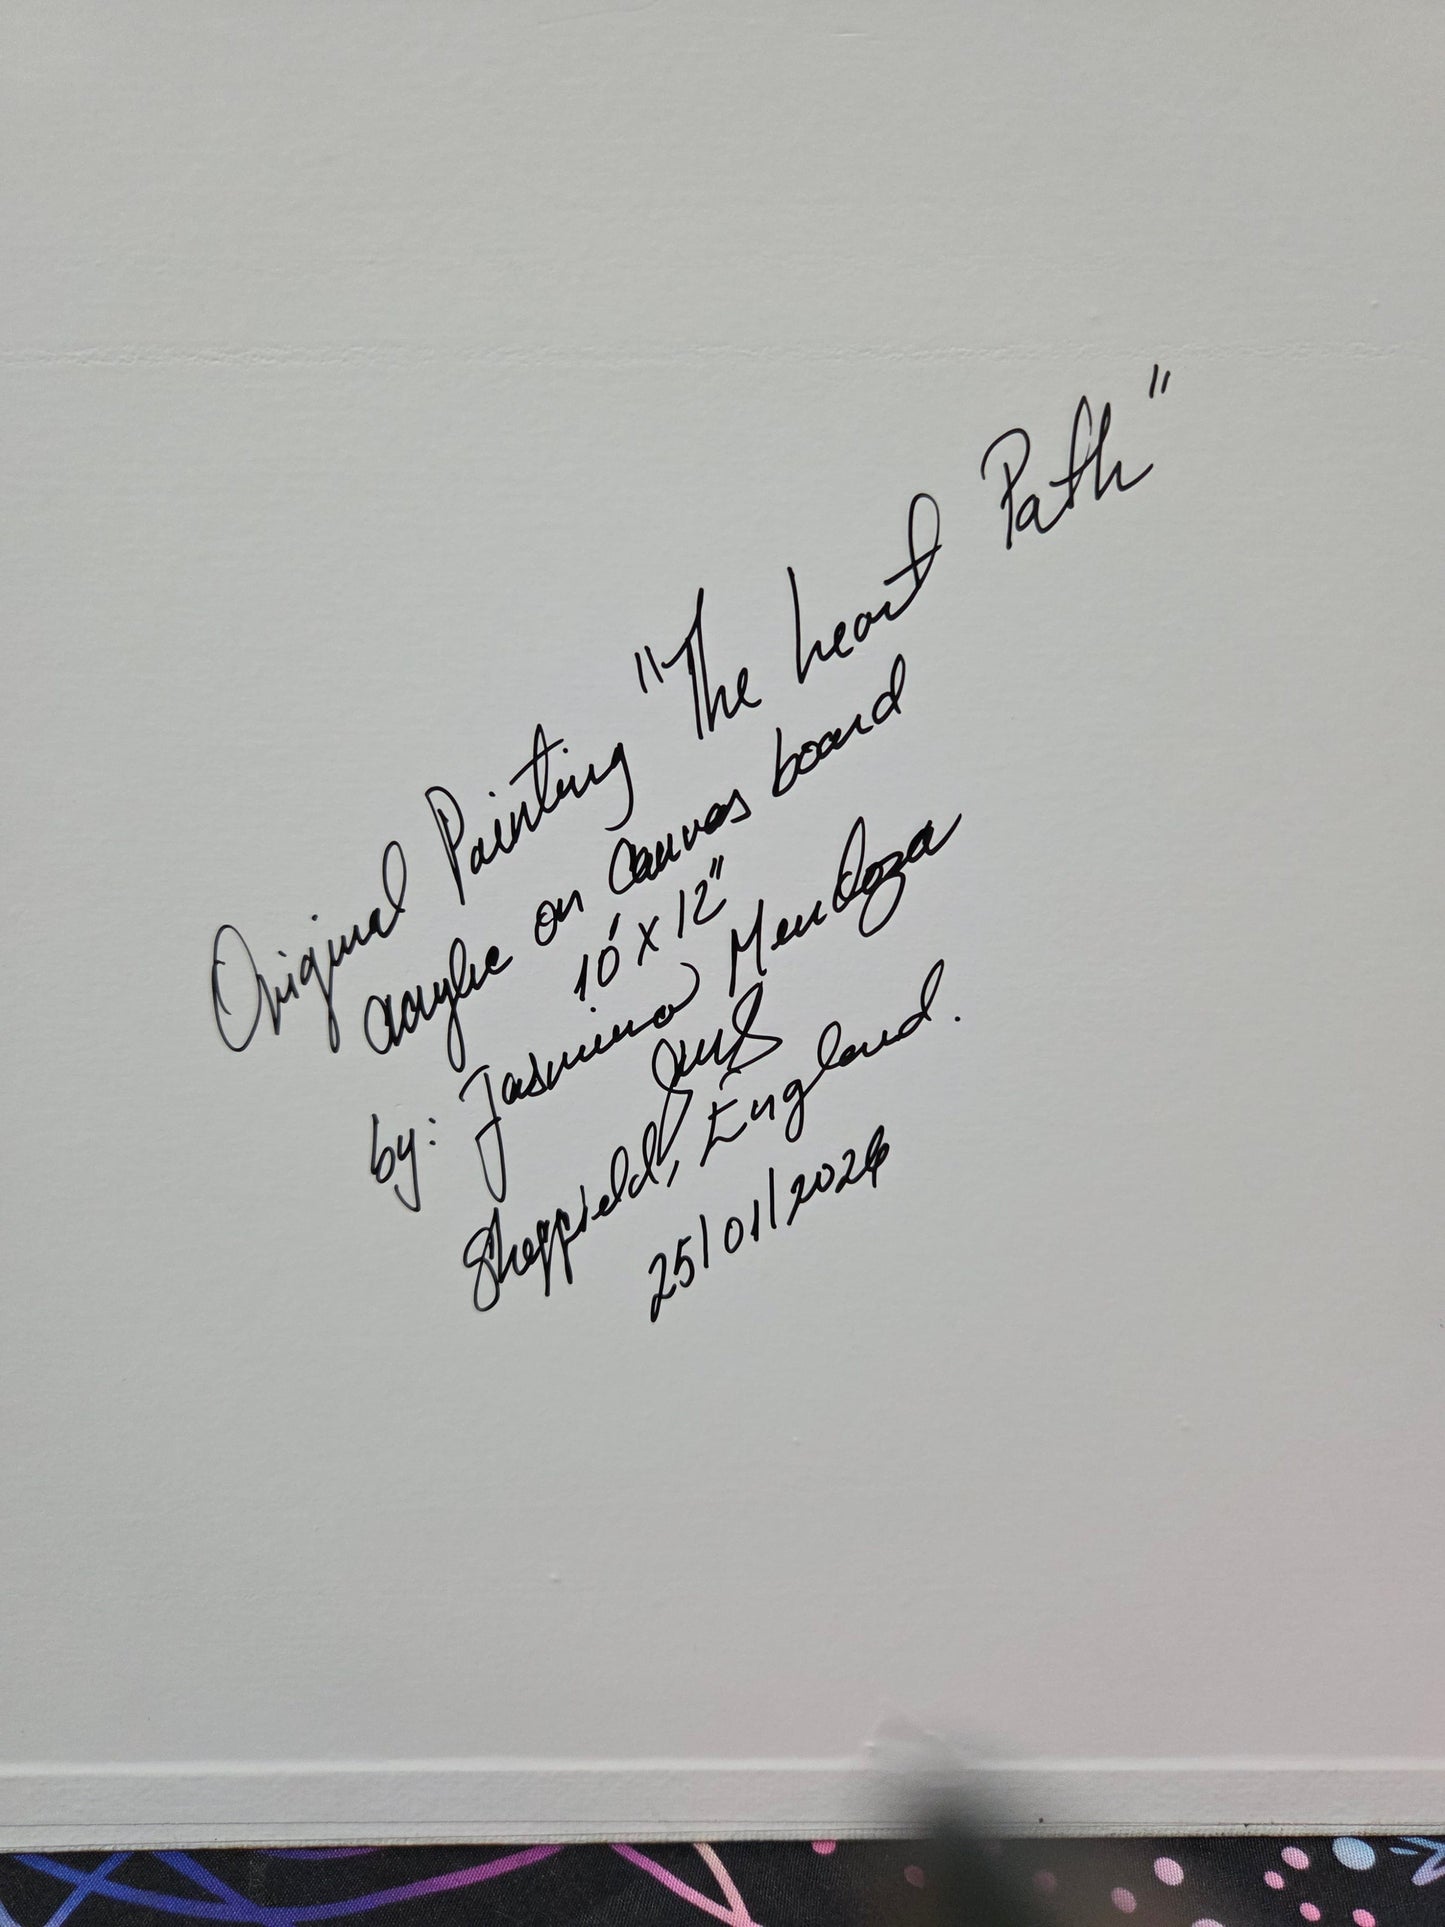 Original Painting "The heart Path"
acrylic on Canvas board
10' x 12"
by: Jasmina Mendoza
Sheffield, England.
25/01/2026